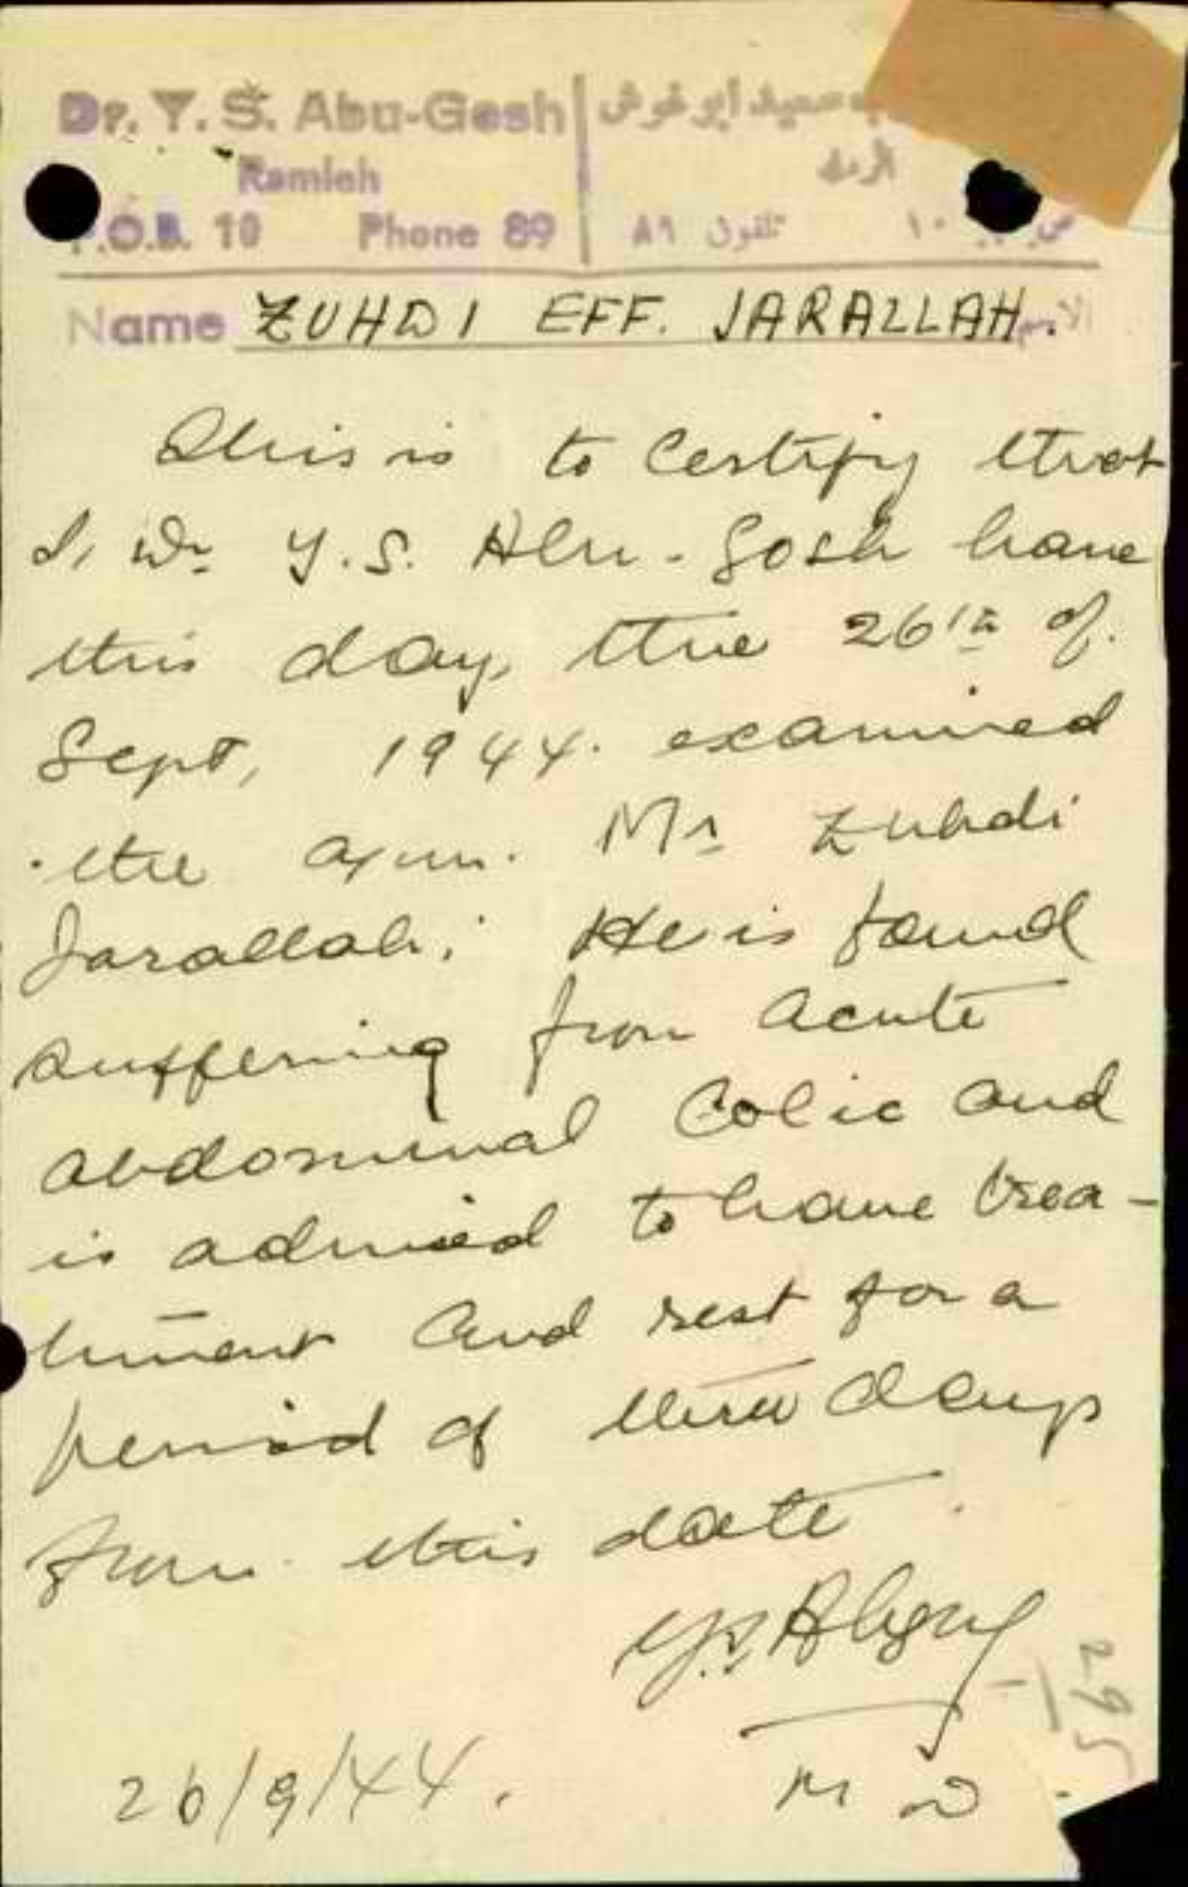 Dr. Y. S. Abu-Gosh
سعيد أبو غوش
Ramleh
الرملة
P.O.B. 10 Phone 89
تلفون ٨٩ ١٠
Name ZUHDI EFF. JARALLAH. الاسم
This is to Certify that
I, Dr Y.S. Abu-Gosh have
this day, the 26th of
Sept, 1944. examined
the Mr Zuhdi
Jarallah; He is found
suffering from acute
abdominal Colic and
is advised to have trea-
tment and rest for a
period of three days
from this date
26/9/44.
M D.
295